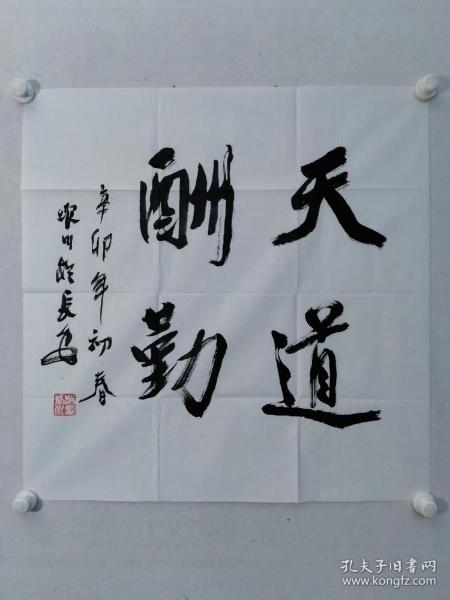 天道
酬勤
辛卯年初春
於长安
孔夫子旧书网
www.kongfz.com